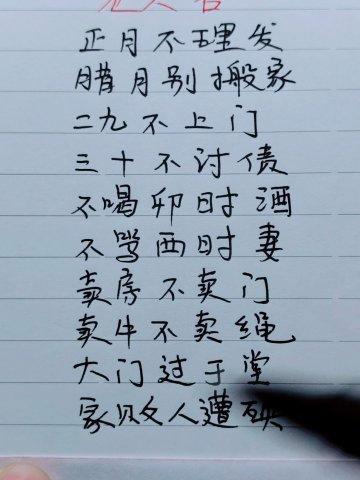 老人言
正月不理发
腊月别搬家
二九不上门
三十不讨债
不喝卯时酒
不骂酉时妻
卖房不卖门
卖牛不卖绳
大门过于堂
家败人遭殃